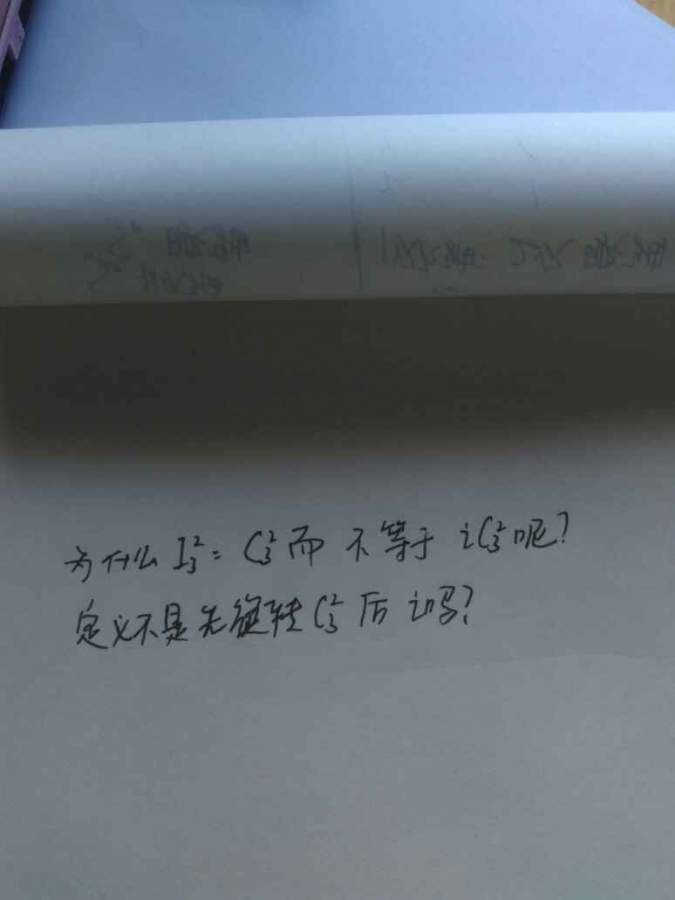 为什么 I₃² = C₃² 而不等于 iC₃² 呢?
定义不是先旋转 C₃² 后 i 吗?